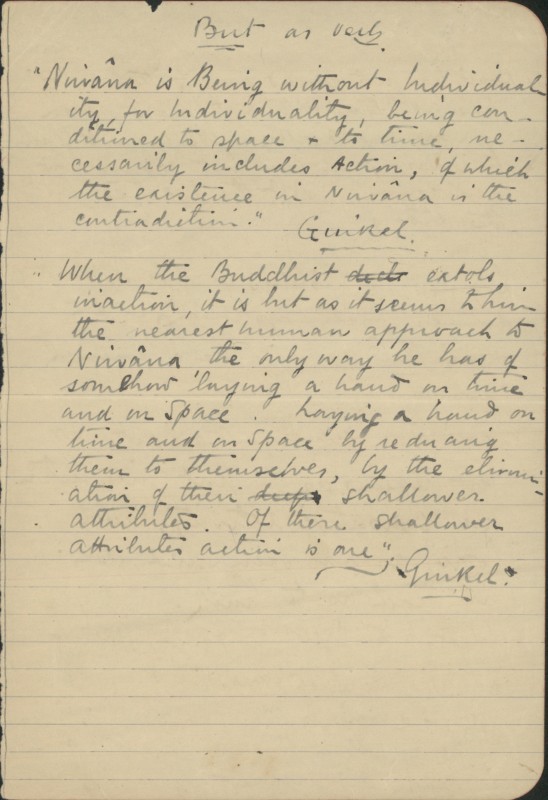 But as verb.
"Nirvâna is Being without Individual
ity, for Individuality, being con-
ditioned to space + to time, ne-
cessarily includes Action, of which
the existence in Nirvâna is the
contradiction."
Ginkel.
"When the Buddhist extols
inaction, it is but as it seems to him
the nearest human approach to
Nirvâna the only way he has of
somehow laying a hand on time
and on Space. Laying a hand on
time and on Space by reducing
them to themselves, by the elimin-
ation of their shallower
attributes. Of these shallower
attributes action is one".
Ginkel."